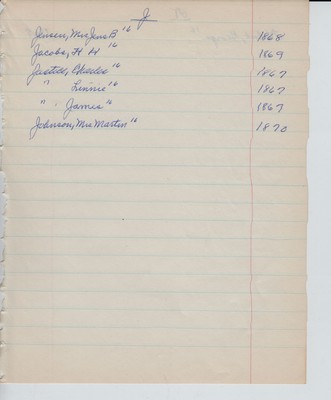 J
Jensen, Mrs Jens B 16 1868
Jacobs, H H 16 1869
Justice, Charles 16 1867
" Linnie 16 1867
" James 16 1867
Johnson, Mrs Martin 16 1870